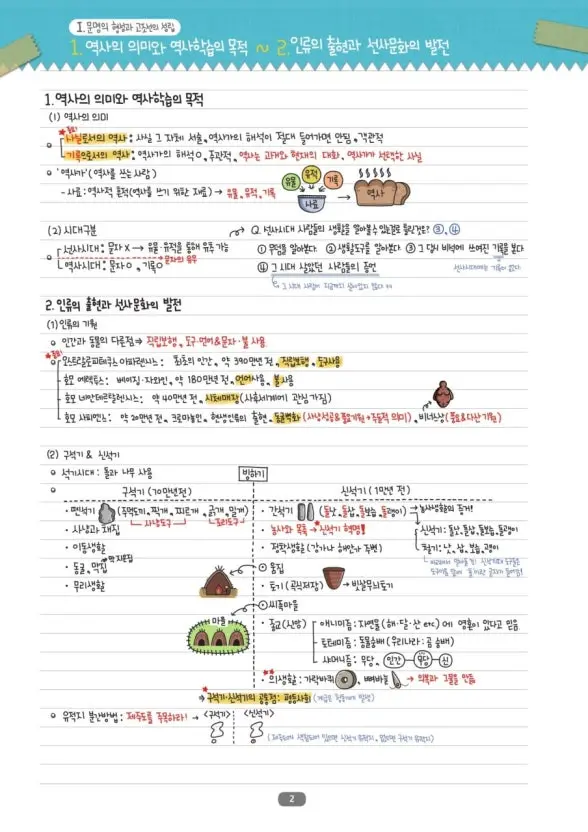 I. 문명의 형성과 고조선의 성립
1. 역사의 의미와 역사학습의 목적 ~ 2. 인류의 출현과 선사문화의 발전
1. 역사의 의미와 역사학습의 목적
(1) 역사의 의미
사실로서의 역사 : 사실 그 자체 서술, 역사가의 해석이 절대 들어가면 안됨, 객관적
기록으로서의 역사 : 역사가의 해석 O, 주관적, 역사는 과거와 현재의 대화, 역사가가 선택한 사실
'역사가' (역사를 쓰는 사람)
- 사료 : 역사적 흔적 (역사를 쓰기 위한 재료) → 유물, 유적, 기록
유물 유적 기록
사료
역사
(2) 시대구분
Q. 선사시대 사람들의 생활을 알아볼 수 있는 것으로 틀린 것은? ③, ④
선사시대 : 문자 X → 유물·유적을 통해 유추 가능
① 무덤을 알아본다. ② 생활도구를 알아본다. ③ 그 당시 비석에 쓰여진 기록을 본다.
역사시대 : 문자 O, 기록 O
문자의 유무
④ 그 시대 살았던 사람들의 증언
선사시대에는 기록이 없다.
2. 인류의 출현과 선사문화의 발전
(1) 인류의 기원
인간과 동물의 다른점 ⇒ 직립보행, 도구·언어&문자·불 사용
오스트랄로피테쿠스 아파렌시스 : 최초의 인간, 약 390만년 전, 직립보행, 도구사용
호모 에렉투스 : 베이징·자와인, 약 180만년 전, 언어사용, 불사용
호모 네안데르탈렌시스 : 약 40만년 전, 시체매장 (사후세계에 관심 가짐)
호모 사피엔스 : 약 20만년 전, 크로마뇽인, 현생인류의 출현, 동굴벽화 (사냥성공&풍요기원 → 주술적 의미), 비너스상 (풍요&다산 기원)
(2) 구석기 & 신석기
석기시대 : 돌과 나무 사용
빙하기
구석기 (70만년 전)
신석기 (1만년 전)
· 뗀석기 (주먹도끼, 찍개, 찌르개, 긁개, 밀개)
사냥도구
조리도구
· 간석기 (돌낫, 돌삽, 돌보습, 돌괭이) → 농사생활의 증거!
· 사냥과 채집
· 농사와 목축 → 신석기 혁명!
신석기 : 돌낫, 돌삽, 돌보습, 돌괭이
철기 : 낫, 삽, 보습, 괭이
· 이동생활
· 정착생활 (강가나 해안가 주변)
· 동굴, 막집
· 움집
· 무리생활
· 토기 (곡식저장) → 빗살무늬토기
· 씨족마을
마을
· 종교 (신앙)
애니미즘 : 자연물 (해·달·산 etc) 에 영혼이 있다고 믿음
토테미즘 : 동물숭배 (우리나라 : 곰 숭배)
샤머니즘 : 무당, 인간 무당 신
· 의생활 : 가락바퀴, 뼈바늘 → 의복과 그물을 만듦
⇒ 구석기·신석기의 공통점 : 평등사회
유적지 분간방법 : 제주도를 주목하라! → <구석기> <신석기>
2